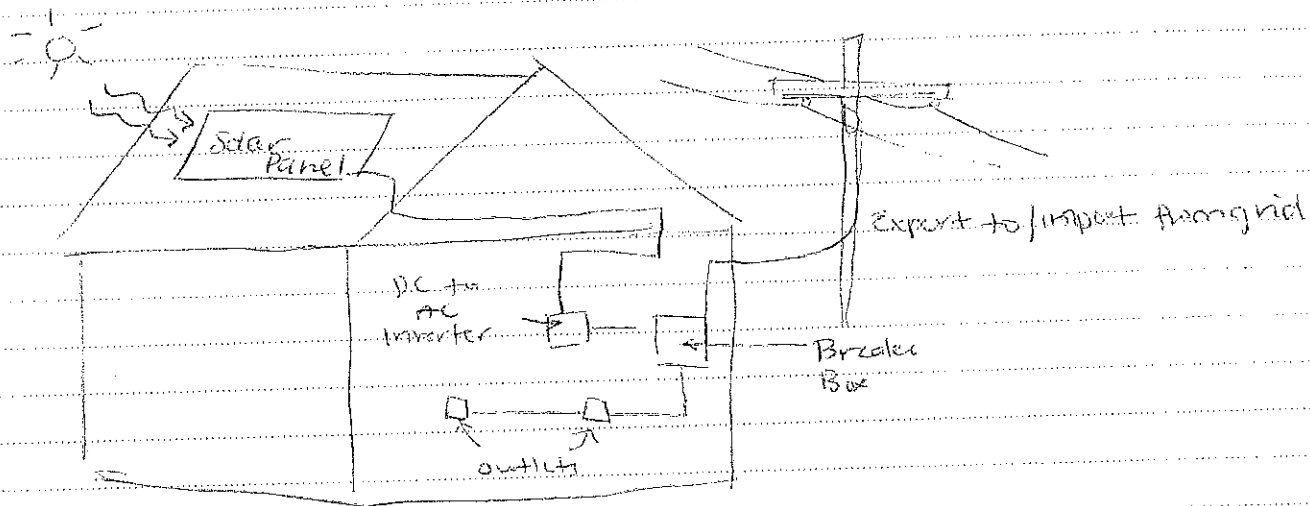 Solar
Panel
Export to/import from grid
DC to
AC
Inverter
Breaker
Box
outlets